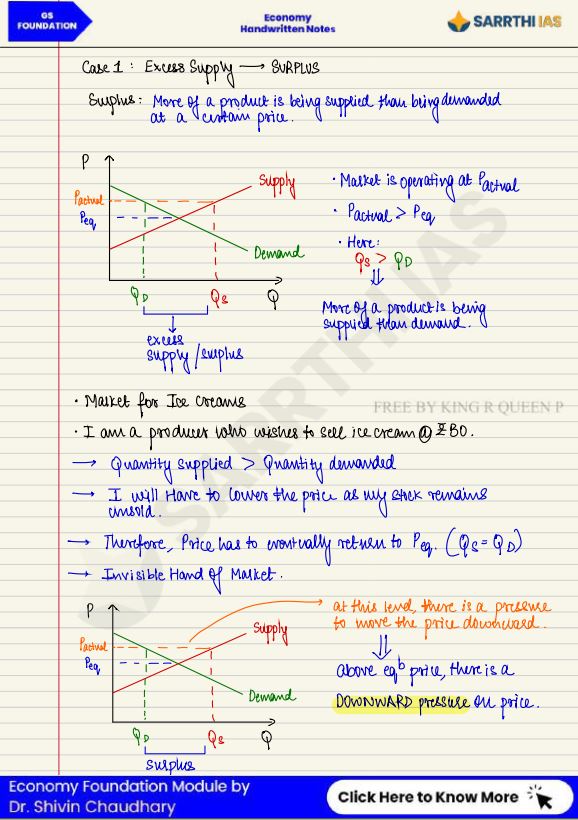 GS
FOUNDATION
Economy
Handwritten Notes
SARRTHI IAS
Case 1 : Excess Supply → SURPLUS
Surplus : More of a product is being supplied than being demanded
at a certain price.
P
Supply
Pactual
Peq
Demand
QD
QS
Q
excess
supply / surplus
· Market is operating at Pactual
· Pactual > Peq
· Here:
QS > QD
⇓
More of a product is being
supplied than demand.
SARRTHI IAS
FREE BY KING R QUEEN P
· Market for Ice creams
· I am a producer who wishes to sell ice cream @ ₹80.
→ Quantity supplied > Quantity demanded
→ I will have to lower the price as my stock remains
unsold.
→ Therefore, Price has to eventually return to Peq. (QS = QD)
→ Invisible Hand of Market.
P
Supply
Pactual
Peq
Demand
QD
QS
Q
surplus
at this level, there is a pressure
to move the price downward.
⇓
above eqb price, there is a
DOWNWARD pressure on price.
Economy Foundation Module by
Dr. Shivin Chaudhary
Click Here to Know More